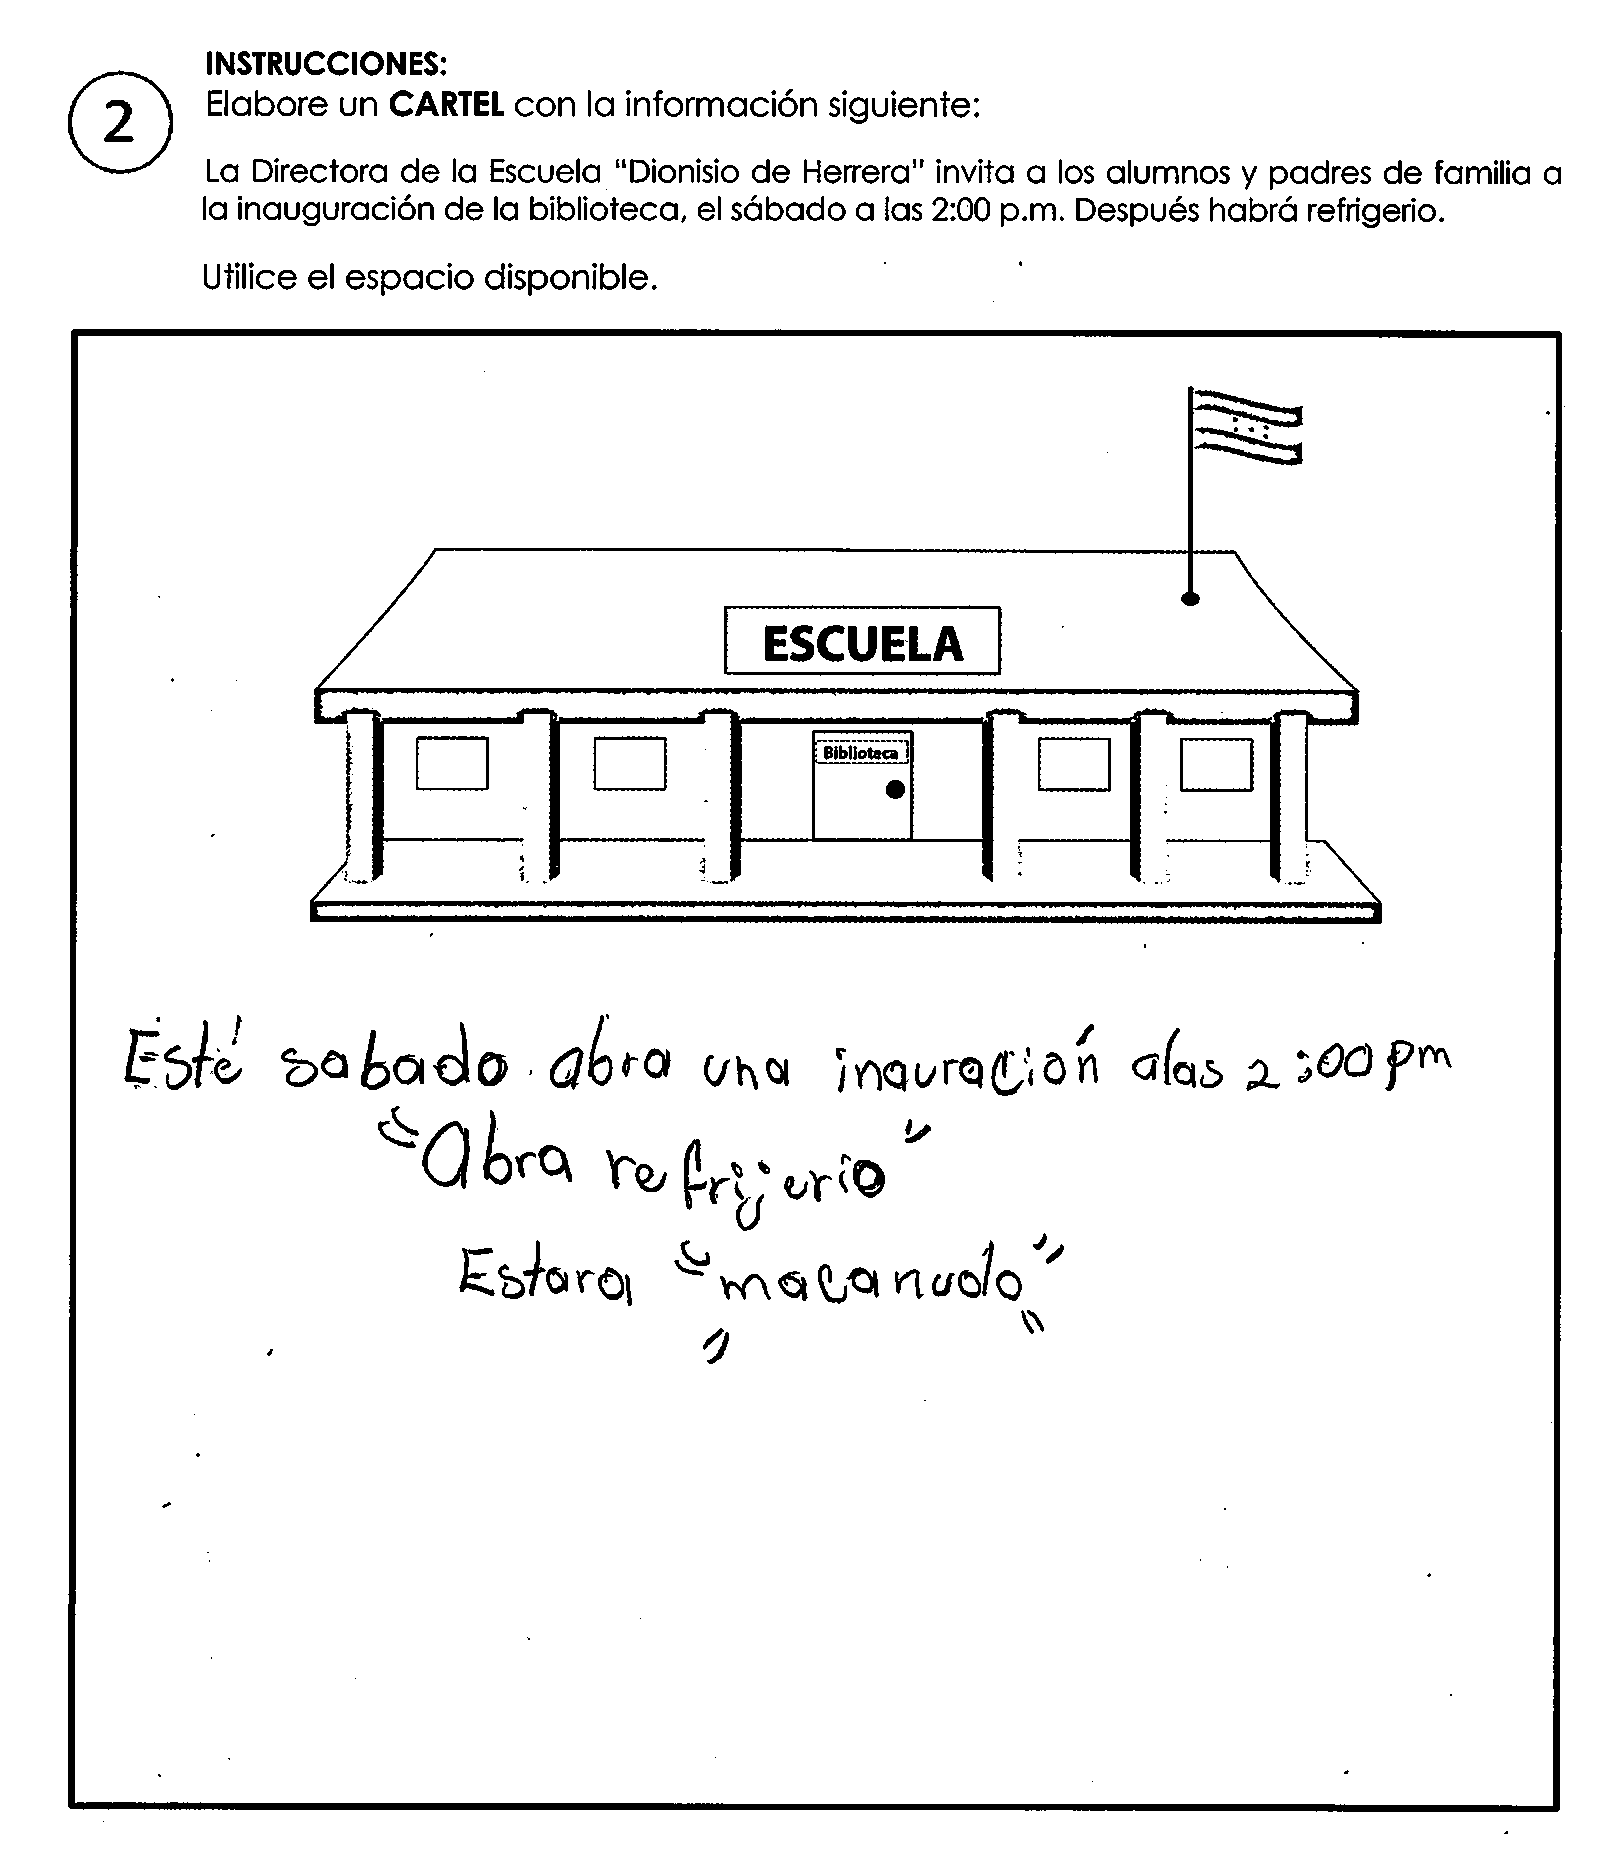 INSTRUCCIONES:
2
Elabore un CARTEL con la información siguiente:
La Directora de la Escuela "Dionisio de Herrera" invita a los alumnos y padres de familia a
la inauguración de la biblioteca, el sábado a las 2:00 p.m. Después habrá refrigerio.
Utilice el espacio disponible.
ESCUELA
Biblioteca
Esté sabado abra una inauración alas 2:00 pm
"Abra refrijerio"
Estara "macanudo"